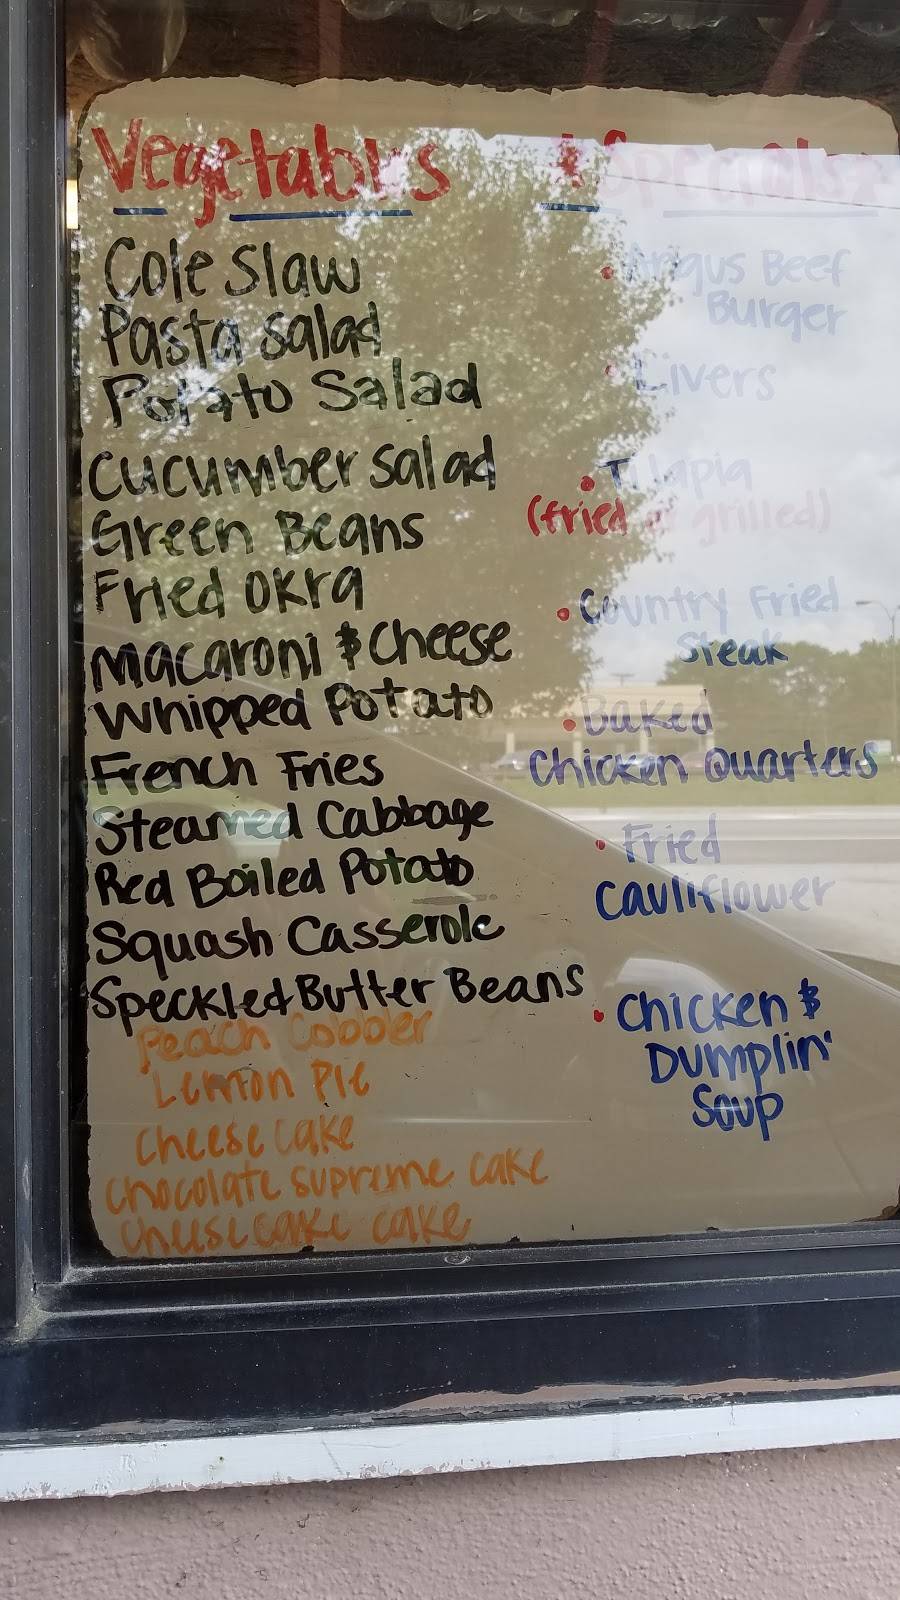 Vegetables
Cole Slaw
Pasta Salad
Potato Salad
Cucumber Salad
Green Beans
Fried Okra
Macaroni & Cheese
Whipped Potato
French Fries
Steamed Cabbage
Red Boiled Potato
Squash Casserole
Speckled Butter Beans
Peach Cobbler
Lemon Pie
Cheese Cake
Chocolate Supreme Cake
Cheesecake Cake
Specials
• Angus Beef
Burger
• Livers
• Tilapia
(fried or grilled)
• Country Fried
Steak
• Baked
Chicken Quarters
• Fried
Cauliflower
• Chicken &
Dumplin'
Soup